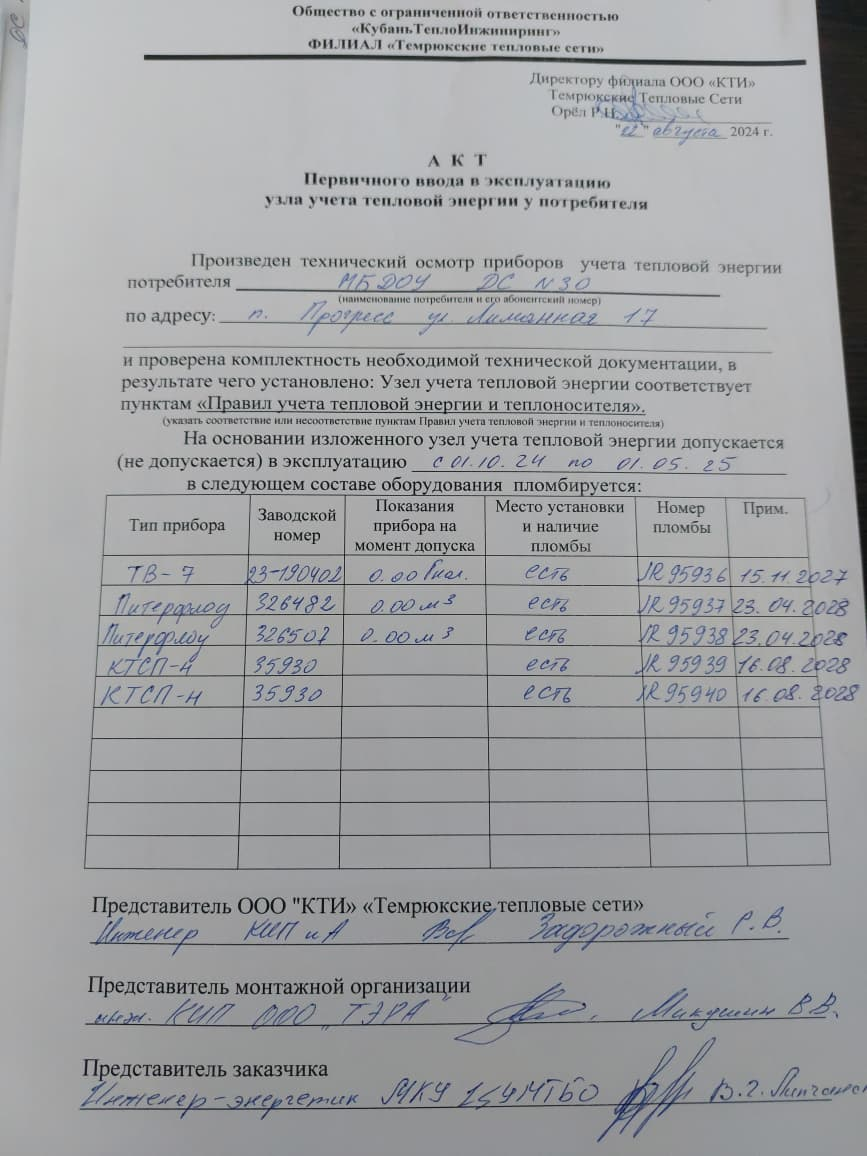 Общество с ограниченной ответственностью
«КубаньТеплоИнжиниринг»
ФИЛИАЛ «Темрюкские тепловые сети»
Директору филиала ООО «КТИ»
Темрюкские Тепловые Сети
Орёл Р.Н.
"22" августа 2024 г.
А К Т
Первичного ввода в эксплуатацию
узла учета тепловой энергии у потребителя
Произведен технический осмотр приборов учета тепловой энергии
потребителя МБДОУ ДС №30
(наименование потребителя и его абонентский номер)
по адресу: п. Прогресс ул. Лиманная 17
и проверена комплектность необходимой технической документации, в
результате чего установлено: Узел учета тепловой энергии соответствует
пунктам «Правил учета тепловой энергии и теплоносителя».
(указать соответствие или несоответствие пунктам Правил учета тепловой энергии и теплоносителя)
На основании изложенного узел учета тепловой энергии допускается
(не допускается) в эксплуатацию с 01.10.24 по 01.05.25
в следующем составе оборудования пломбируется:
Тип прибора Заводской номер Показания прибора на момент допуска Место установки и наличие пломбы Номер пломбы Прим.
ТВ-7 23-190402 0.00 Гкал. есть №95936 15.11.2027
Питерфлоу 326482 0.00 м³ есть №95937 23.04.2028
Питерфлоу 326507 0.00 м³ есть №95938 23.04.2028
КТСП-н 35930 есть №95939 16.08.2028
КТСП-н 35930 есть №95940 16.08.2028
Представитель ООО "КТИ» «Темрюкские тепловые сети»
Инженер КИП и А Задорожный Р.В.
Представитель монтажной организации
инж. КИП ООО "ТЭРА" Микушин В.В.
Представитель заказчика
Инженер-энергетик МКУ В.Г.